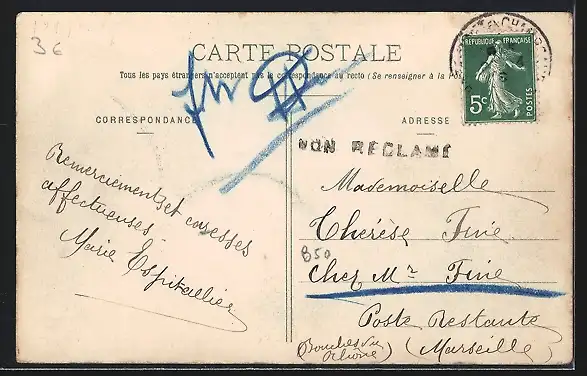 3€
CARTE POSTALE
Tous les pays étrangers n'acceptent pas la correspondance au recto (Se renseigner à la
CORRESPONDANCE
ADRESSE
REPUBLIQUE FRANÇAISE
5c
POSTES
NON RÉCLAMÉ
Remerciements et caresses
affectueuses
Marie Espitallier
Mademoiselle
Thérèse Finie
850
Chez Mr Finie
Poste Restante
(Bouches du Rhône) (Marseille)